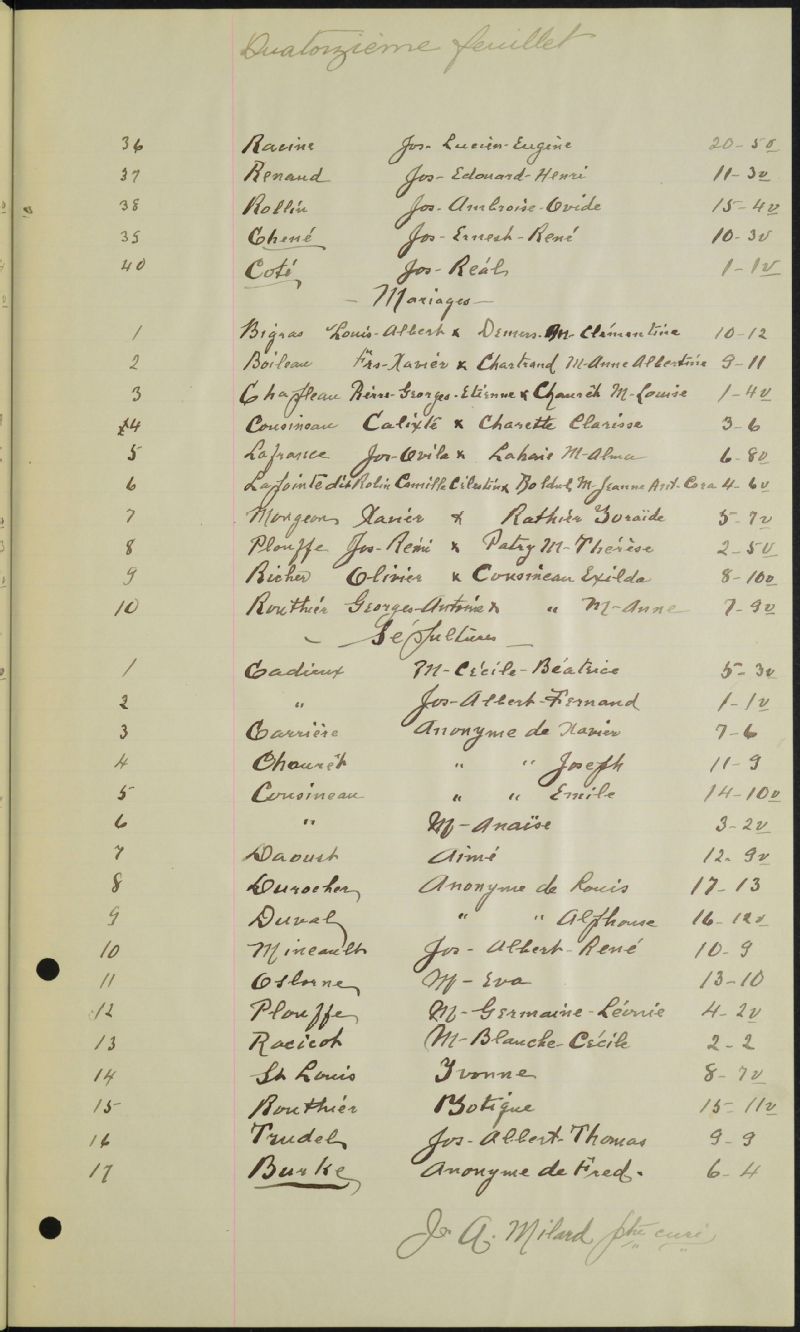 Quatorzième feuillet
36 Racine Jos-Lucien-Eugène 20-5v
37 Renaud Jos-Edouard-Henri 11-3v
38 Rollin Jos-Ambroise-Ovide 15-4v
35 Chené Jos-Ernest-René 10-3v
40 Coté Jos-Reál 1-1v
- Mariages -
1 Bigras Louis-Albert x Demers-M-Clémentine 10-12
2 Boileau Frs-Xavier x Chartrand M-Anne Albertine 9-11
3 Chapleau Pierre-Georges-Etienne x Chaurêt M-Louise 1-4v
4 Cousineau Calixte x Charette Clarisse 3-6
5 Lafrance Jos-Ovila x Lahaie M-Alma 6-8v
6 Lapointe dit Robin Camille Célestin x Bolduc M-Jeanne Ant. Cora 4-6v
7 Mongeon Xavier x Rathier Zoraïde 5-7v
8 Plouffe Jos-Rémi x Patry M-Thérèse 2-5v
9 Richer Olivier x Cousineau Exilda 8-10v
10 Routhiér Georges-Antoine x " M-Anne 7-9v
- Sépultures -
1 Cadieux M-Cécile-Béatrice 5-3v
2 " Jos-Albert-Fernand 1-1v
3 Carrière Anonyme de Xavier 7-6
4 Chaurêt " " Joseph 11-9
5 Cousineau " " Emile 14-10v
6 " M-Anaïse 3-2v
7 Daoust Aimé 12-9v
8 Durocher Anonyme de Louis 17-13
9 Duval " " Alphonse 16-12v
10 Mineault Jos-Albert-René 10-9
11 Osborne M-Eva 13-10
12 Plouffe M-Germaine-Léonie 4-2v
13 Racicot M-Blanche-Cécile 2-2
14 St Louis Yvonne 8-7v
15 Routhiér 15-11v
16 Trudel Jos-Albert-Thomas 9-9
17 Burke Anonyme de Fred. 6-4
Jos A. Milard ptre curé